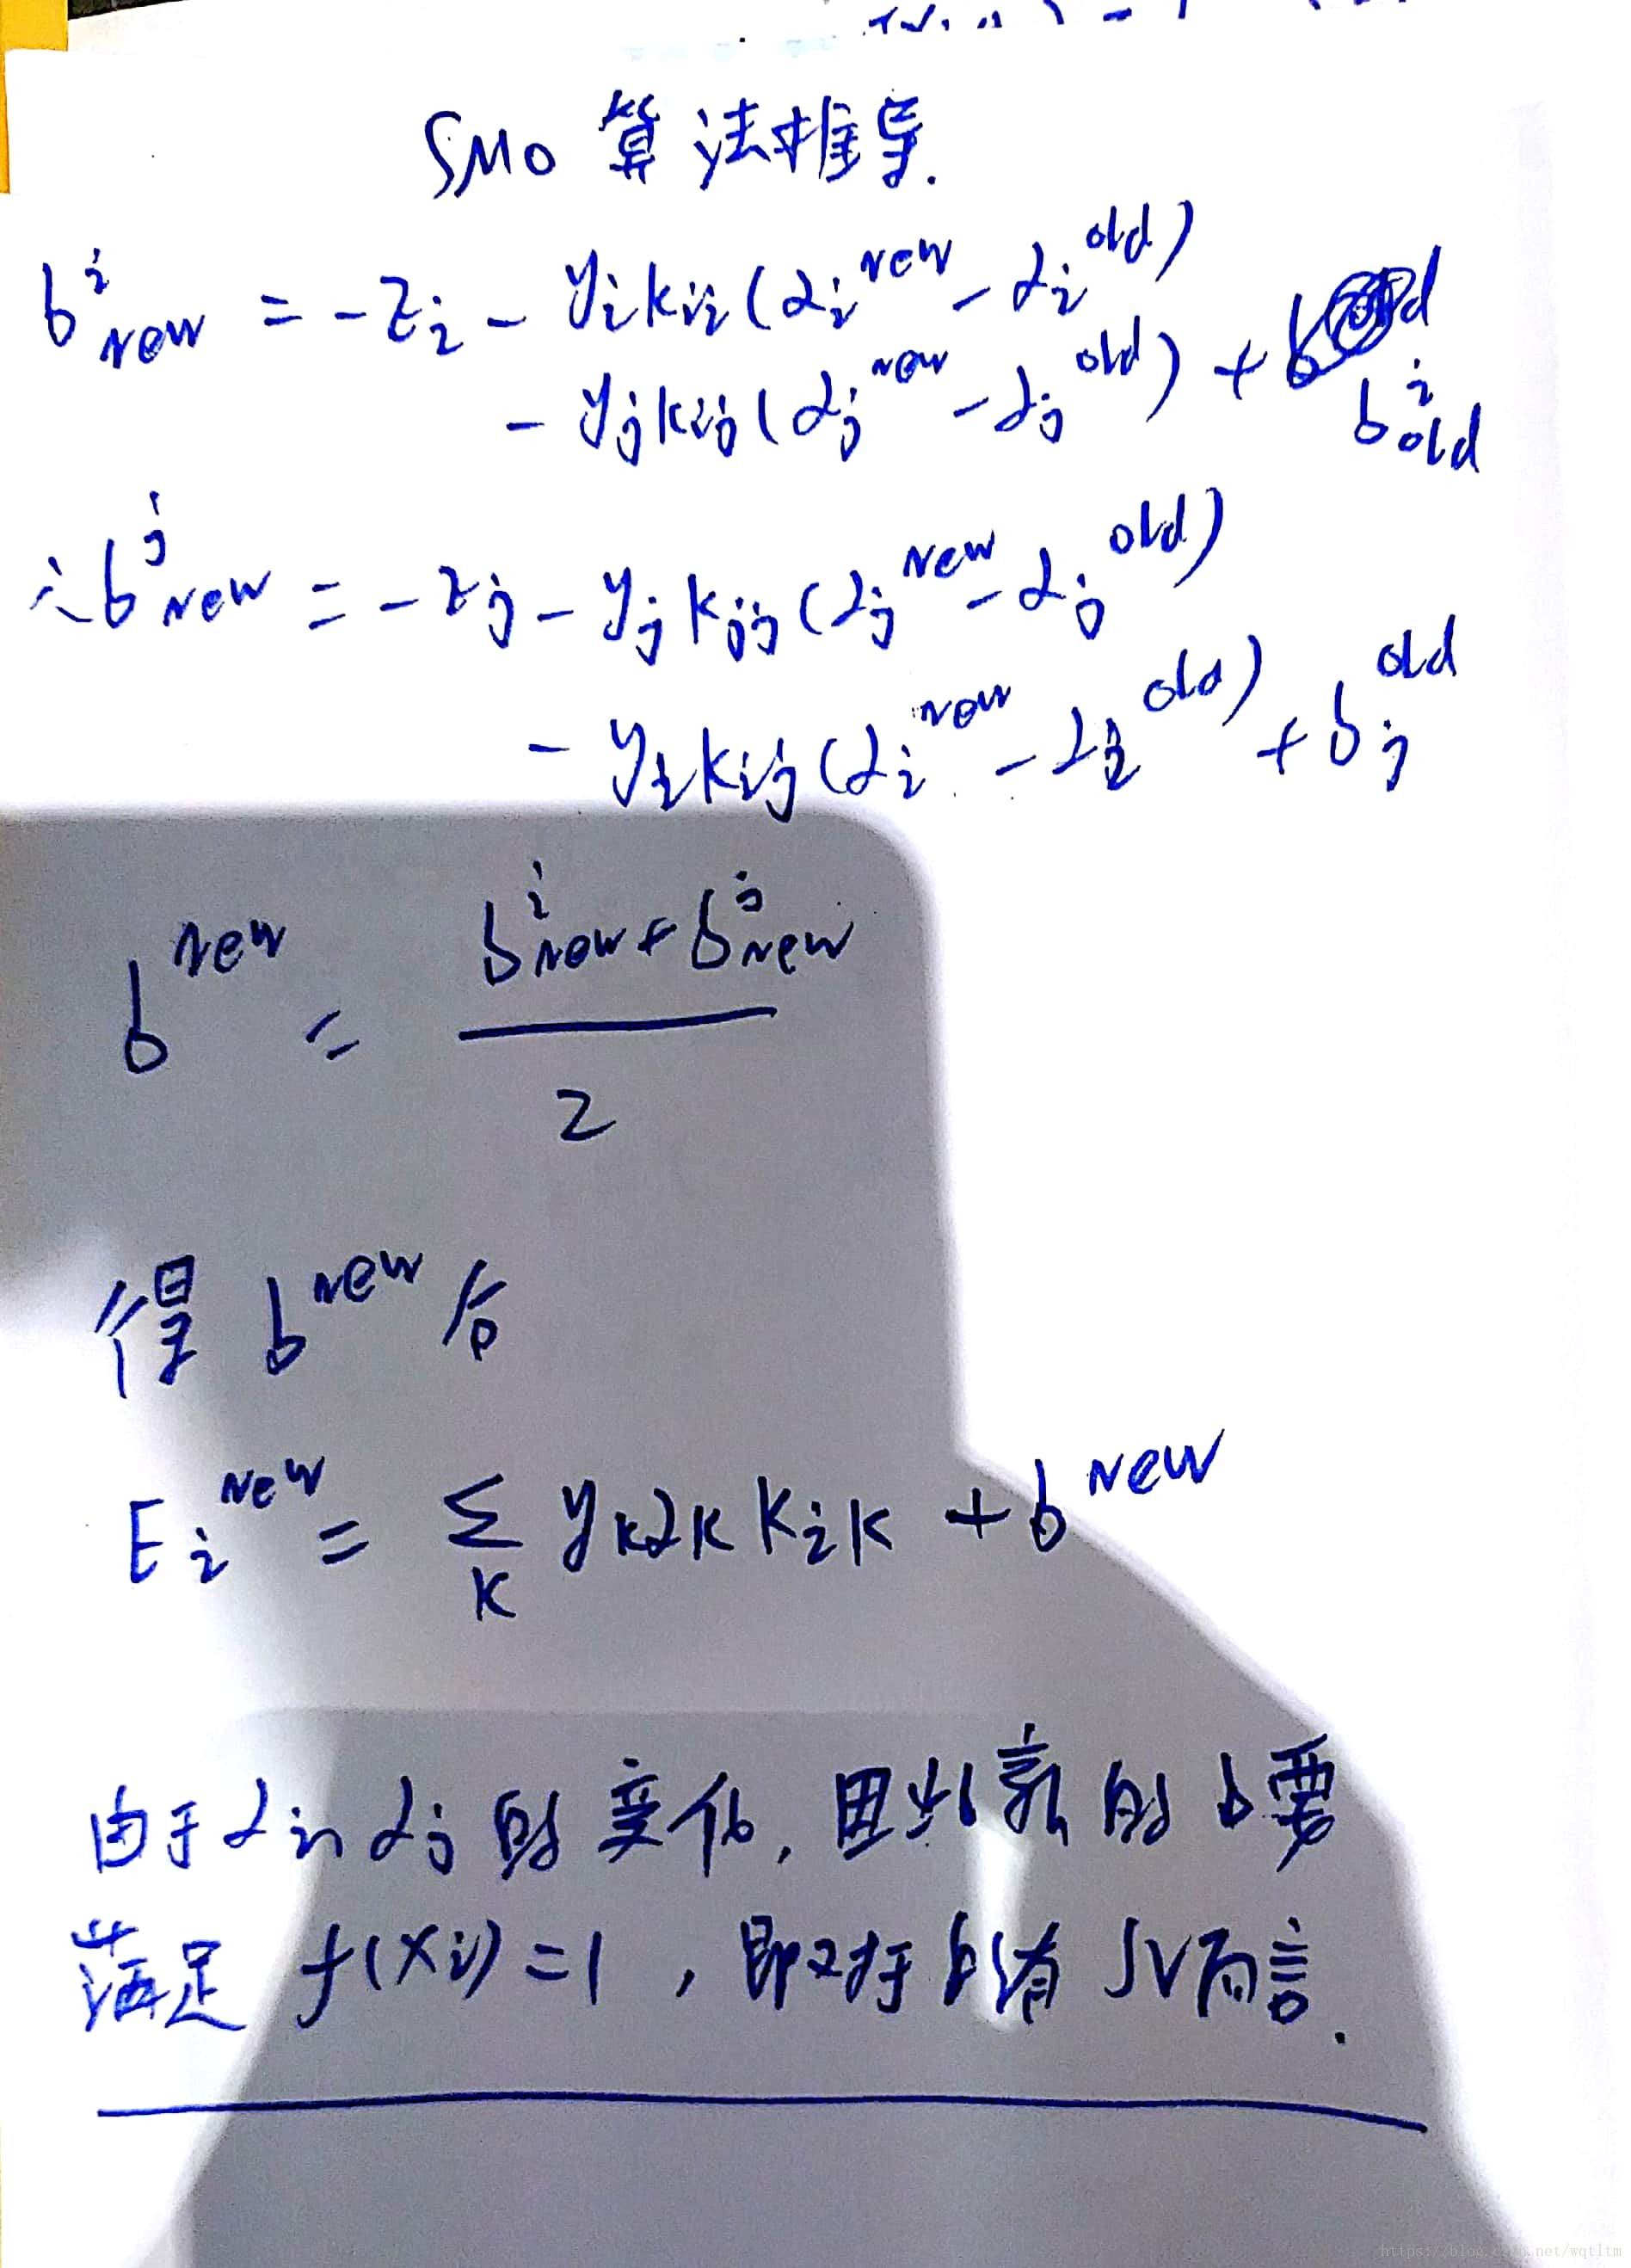 SMO 算法推导.
b^i_new = -z_i - y_i k_ii (α_i^new - α_i^old)
- y_j k_ij (α_j^new - α_j^old) + b^i_old
∴ b^j_new = -z_j - y_j k_jj (α_j^new - α_j^old)
- y_i k_ij (α_i^new - α_i^old) + b_j^old
b^new = (b^i_new + b^j_new) / 2
得 b^new 后
E_i^new = Σ_k y_k α_k k_ik + b^new
由于 α_i, α_j 的变化, 因此新的 b 要
满足 f(x_i) = 1, 即对于所有 SV 而言.